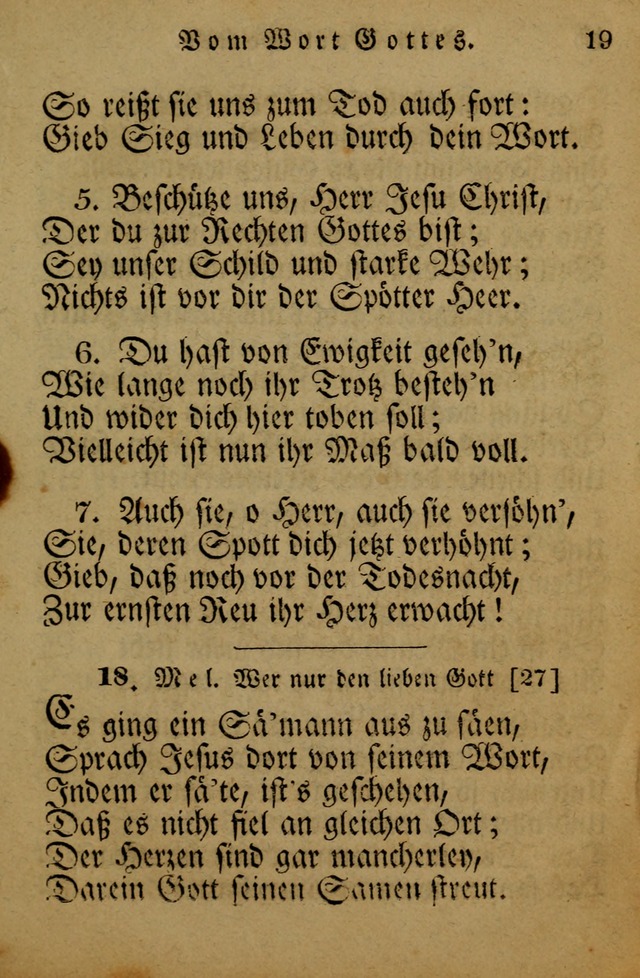 Vom Wort Gottes. 19
So reißt sie uns zum Tod auch fort:
Gieb Sieg und Leben durch dein Wort.
5. Beschütze uns, Herr Jesu Christ,
Der du zur Rechten Gottes bist;
Sey unser Schild und starke Wehr;
Nichts ist vor dir der Spötter Heer.
6. Du hast von Ewigkeit geseh'n,
Wie lange noch ihr Trotz besteh'n
Und wider dich hier toben soll;
Vielleicht ist nun ihr Maß bald voll.
7. Auch sie, o Herr, auch sie versöhn',
Sie, deren Spott dich jetzt verhöhnt;
Gieb, daß noch vor der Todesnacht,
Zur ernsten Reu ihr Herz erwacht!
18. Mel. Wer nur den lieben Gott [27]
Es ging ein Sä'mann aus zu säen,
Sprach Jesus dort von seinem Wort,
Indem er sä'te, ist's geschehen,
Daß es nicht fiel an gleichen Ort;
Der Herzen sind gar mancherley,
Darein Gott seinen Samen streut.